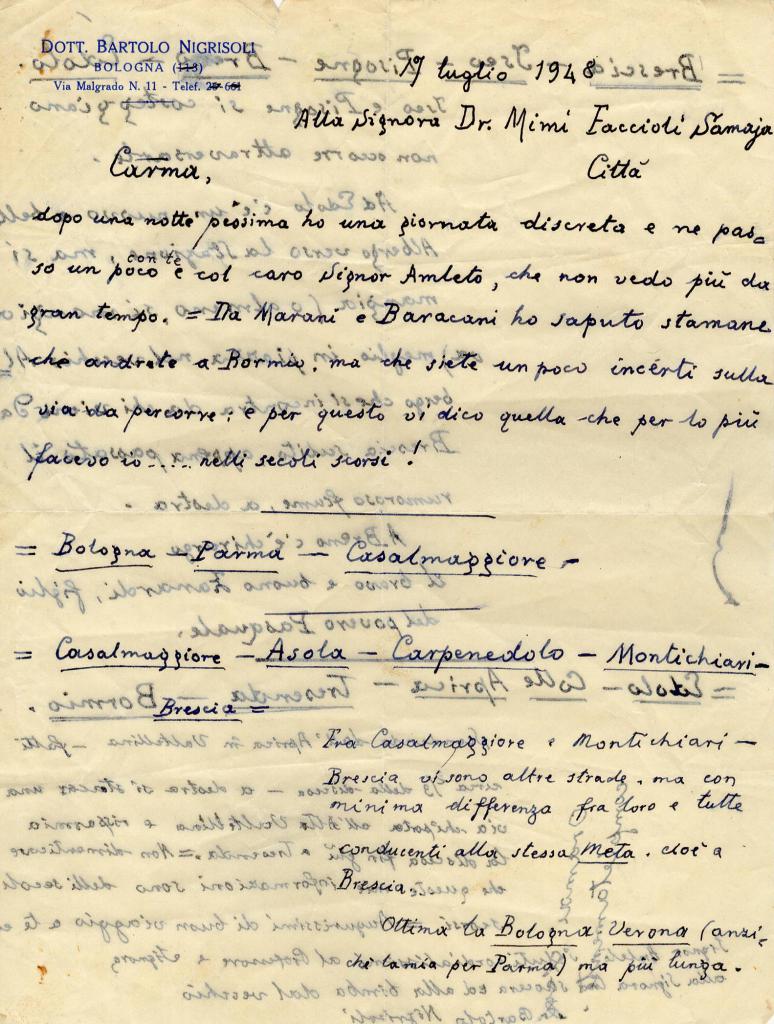 DOTT. BARTOLO NIGRISOLI
BOLOGNA (113)
Via Malgrado N. 11 - Telef. 28-661
17 luglio 1948
Alla Signora Dr. Mimi Faccioli Samaja
Città
Carma,
dopo una notte pessima ho una giornata discreta e ne pas=
so un poco con te e col caro Signor Amleto, che non vedo più da
gran tempo. = Da Marani e Baracani ho saputo stamane
che andrete a Bormio, ma che siete un poco incerti sulla
via da percorre; e per questo vi dico quella che per lo più
facevo io .... nelli secoli scorsi!
= Bologna - Parma - Casalmaggiore -
= Casalmaggiore - Asola - Carpenedolo - Montichiari -
Brescia =
Fra Casalmaggiore e Montichiari -
Brescia vi sono altre strade, ma con
minima differenza fra loro e tutte
conducenti alla stessa Meta, cioè a
Brescia.
Ottima la Bologna Verona (anzi-
chè la mia per Parma) ma più lunga.